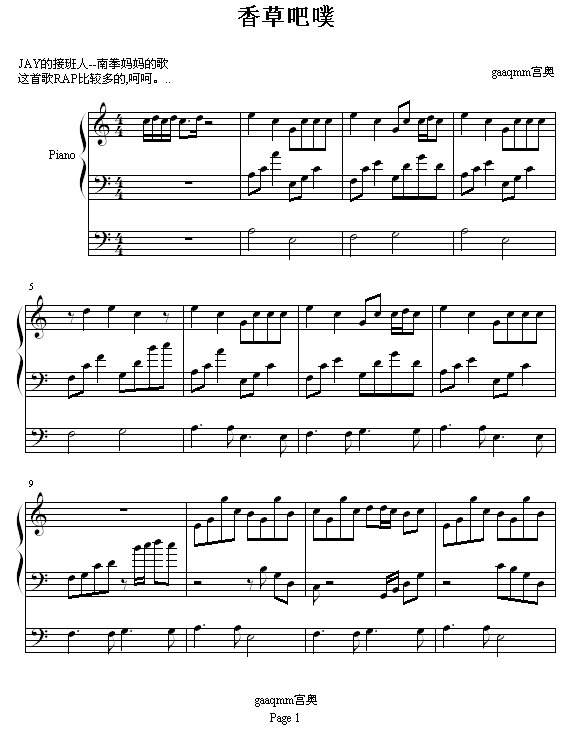 香草吧噗
JAY的接班人--南拳妈妈的歌
这首歌RAP比较多的,呵呵。..
gaaqmm宫奥
Piano
5
9
gaaqmm宫奥
Page 1